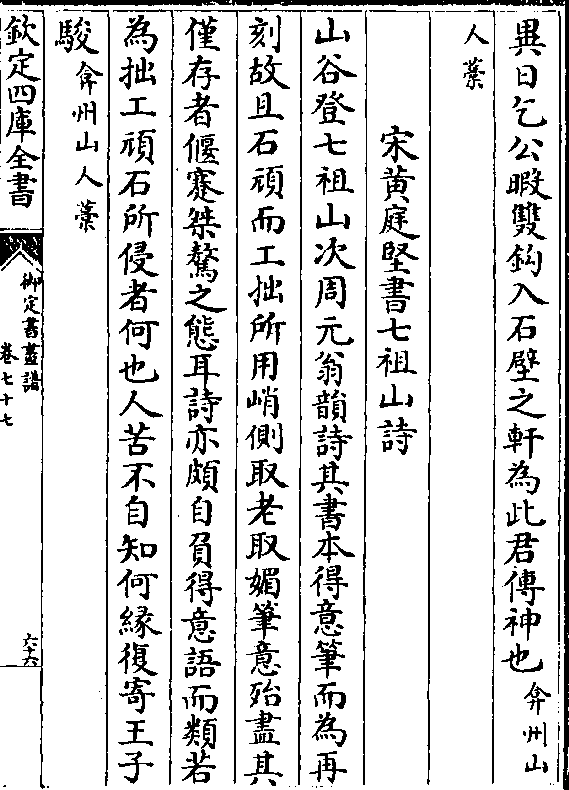 異日乞公暇雙鈎入石壁之軒為此君傳神也弇州山
人藁
宋黄庭堅書七祖山詩
山谷登七祖山次周元翁韻詩其書本得意筆而為再
刻故且石頑而工拙所用峭側取老取媚筆意殆盡其
僅存者偃蹇桀驁之態耳詩亦頗自負得意語而類若
為拙工頑石所侵者何也人苦不自知何縁復寄王子
駿弇州山人藁
欽定四庫全書
御定書畫譜
卷七十七
六十六